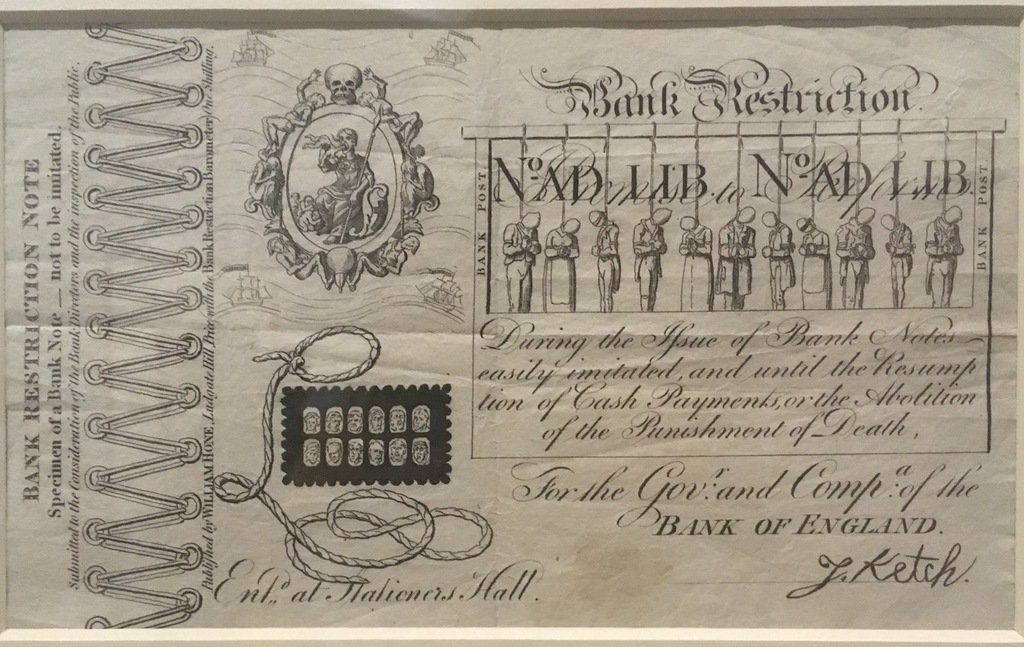 BANK RESTRICTION NOTE
Specimen of a Bank Note — not to be imitated.
Submitted to the Consideration of the Bank Directors and the inspection of the Public.
Published by WILLIAM HONE, Ludgate Hill Price with the Bank Restriction Barometer One Shilling.
Bank Restriction.
BANK POST
No. AD. LIB. to No. AD. LIB.
BANK POST
During the Issue of Bank Notes
easily imitated, and until the Resump
tion of Cash Payments, or the Abolition
of the Punishment of Death,
For the Govr. and Compa. of the
BANK OF ENGLAND.
J. Ketch.
Entd. at Stationers Hall.